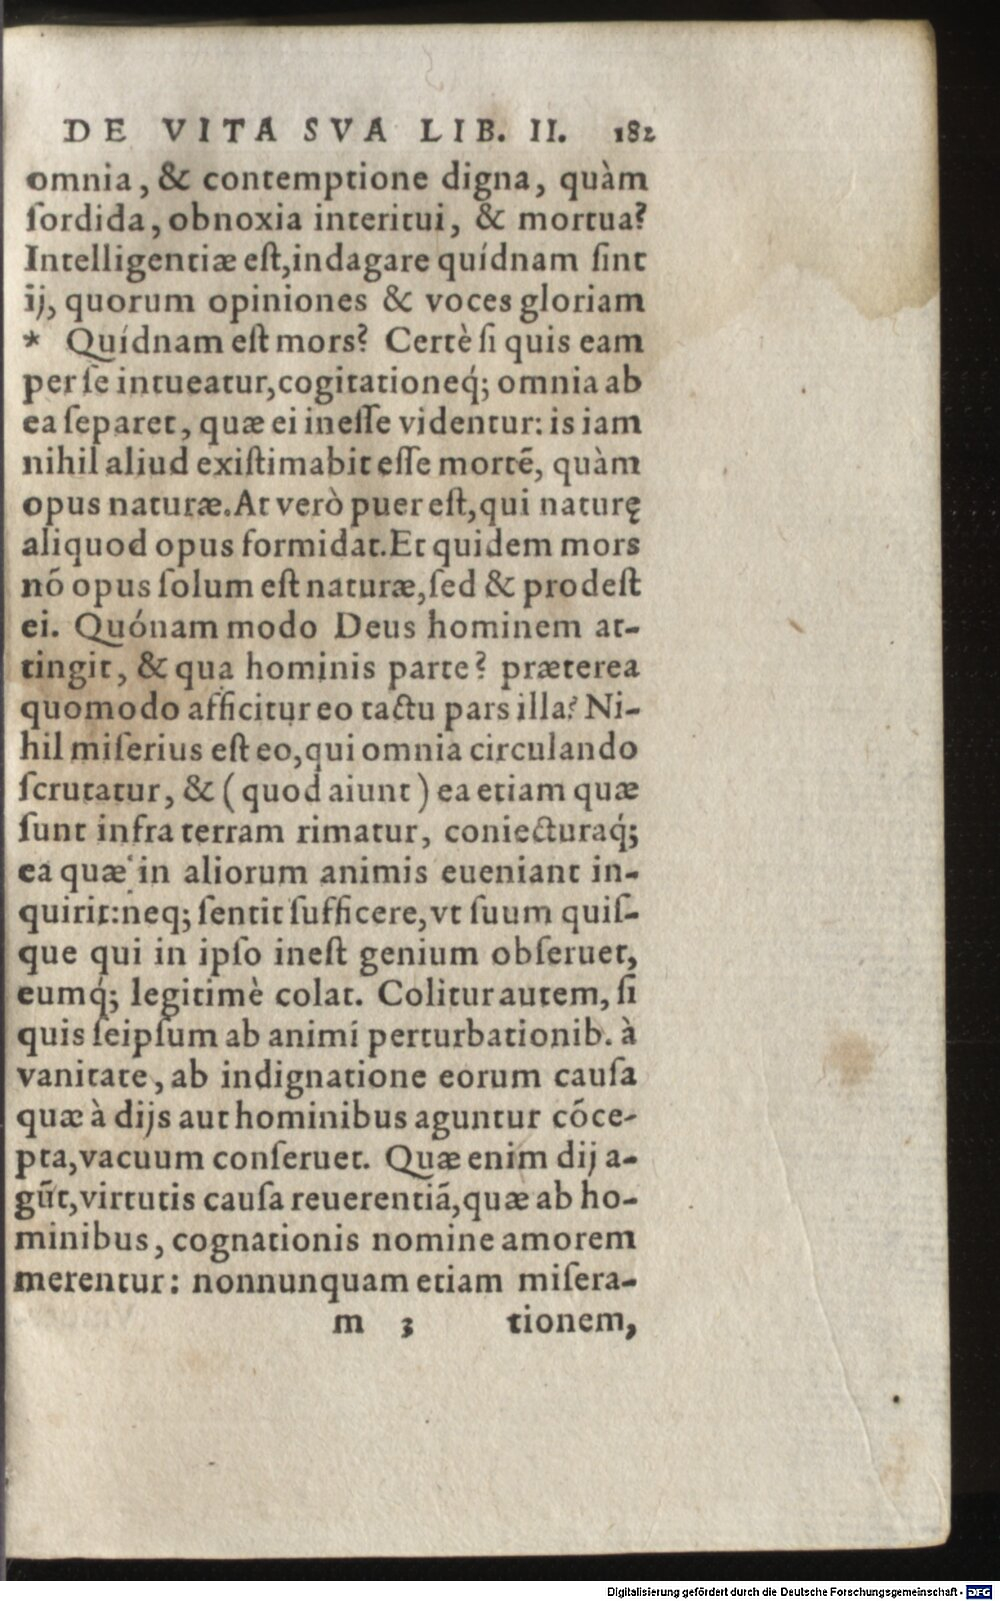 DE VITA SVA LIB. II. 182
omnia, & contemptione digna, quàm
ſordida, obnoxia interitui, & mortua?
Intelligentiæ eſt, indagare quídnam ſint
ij, quorum opiniones & voces gloriam
* Quídnam eſt mors? Certè ſi quis eam
per ſe intueatur, cogitationeq́; omnia ab
ea ſeparet, quæ ei ineſſe videntur: is iam
nihil aliud exiſtimabit eſſe mortẽ, quàm
opus naturæ. At verò puer eſt, qui naturę
aliquod opus formidat. Et quidem mors
nõ opus ſolum eſt naturæ, ſed & prodeſt
ei. Quónam modo Deus hominem at-
tingit, & qua hominis parte? præterea
quomodo afficitur eo tactu pars illa? Ni-
hil miſerius eſt eo, qui omnia circulando
ſcrutatur, & (quod aiunt) ea etiam quæ
ſunt infra terram rimatur, coniecturaq́;
ea quæ in aliorum animis eueniant in-
quirit: neq; ſentit ſufficere, vt ſuum quiſ-
que qui in ipſo ineſt genium obſeruet,
eumq́; legitimè colat. Colitur autem, ſi
quis ſeipſum ab animi perturbationib. à
vanitate, ab indignatione eorum cauſa
quæ à dijs aut hominibus aguntur cõce-
pta, vacuum conſeruet. Quæ enim dij a-
gũt, virtutis cauſa reuerentiã, quæ ab ho-
minibus, cognationis nomine amorem
merentur: nonnunquam etiam miſera-
m 3 tionem,
Digitalisierung gefördert durch die Deutsche Forschungsgemeinschaft - DFG